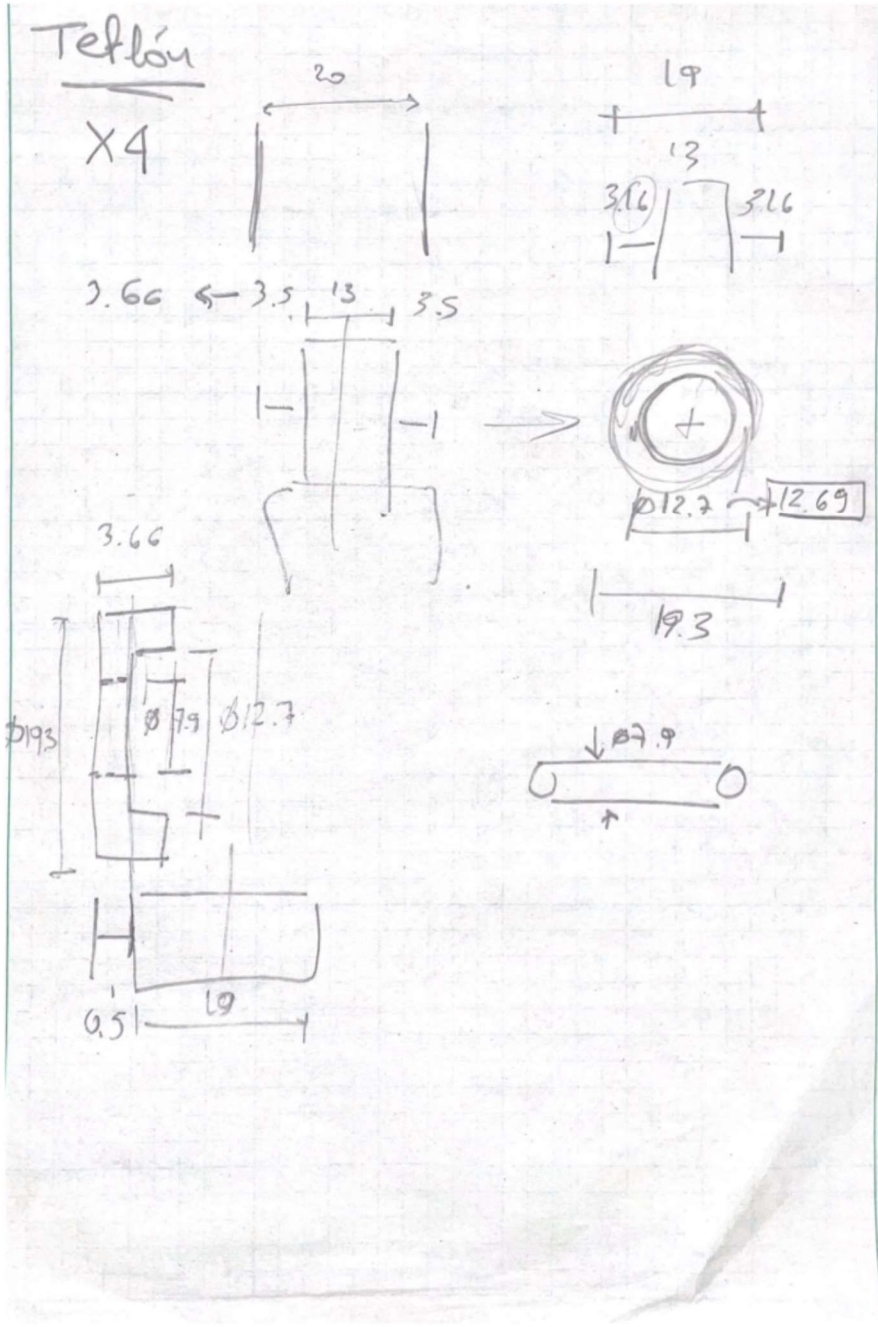 Teflón
X4
20
19
13
3.16
3.16
3.66 ← 3.5 13 3.5
Ø12.7 → 12.69
19.3
3.66
Ø193
Ø7.9
Ø12.7
Ø7.9
0.5
19